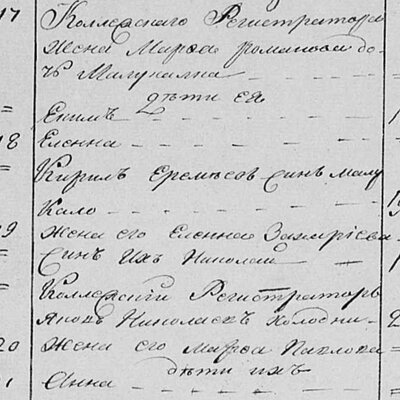 17 Коллежскаго Регистратора
Жена Марѳа Романова до-
чь
Дѣти ея
Ефимъ
18 Еленна
Кирилъ Еремѣевъ Синъ Малу
Кало
19 Жена его Еленна Захарїева
Синъ Ихъ Николай
Коллежскїй Регистраторъ
Яковъ Николаевъ Холодни
20 Жена его Марѳа Павлова
дѣти ихъ
Анна